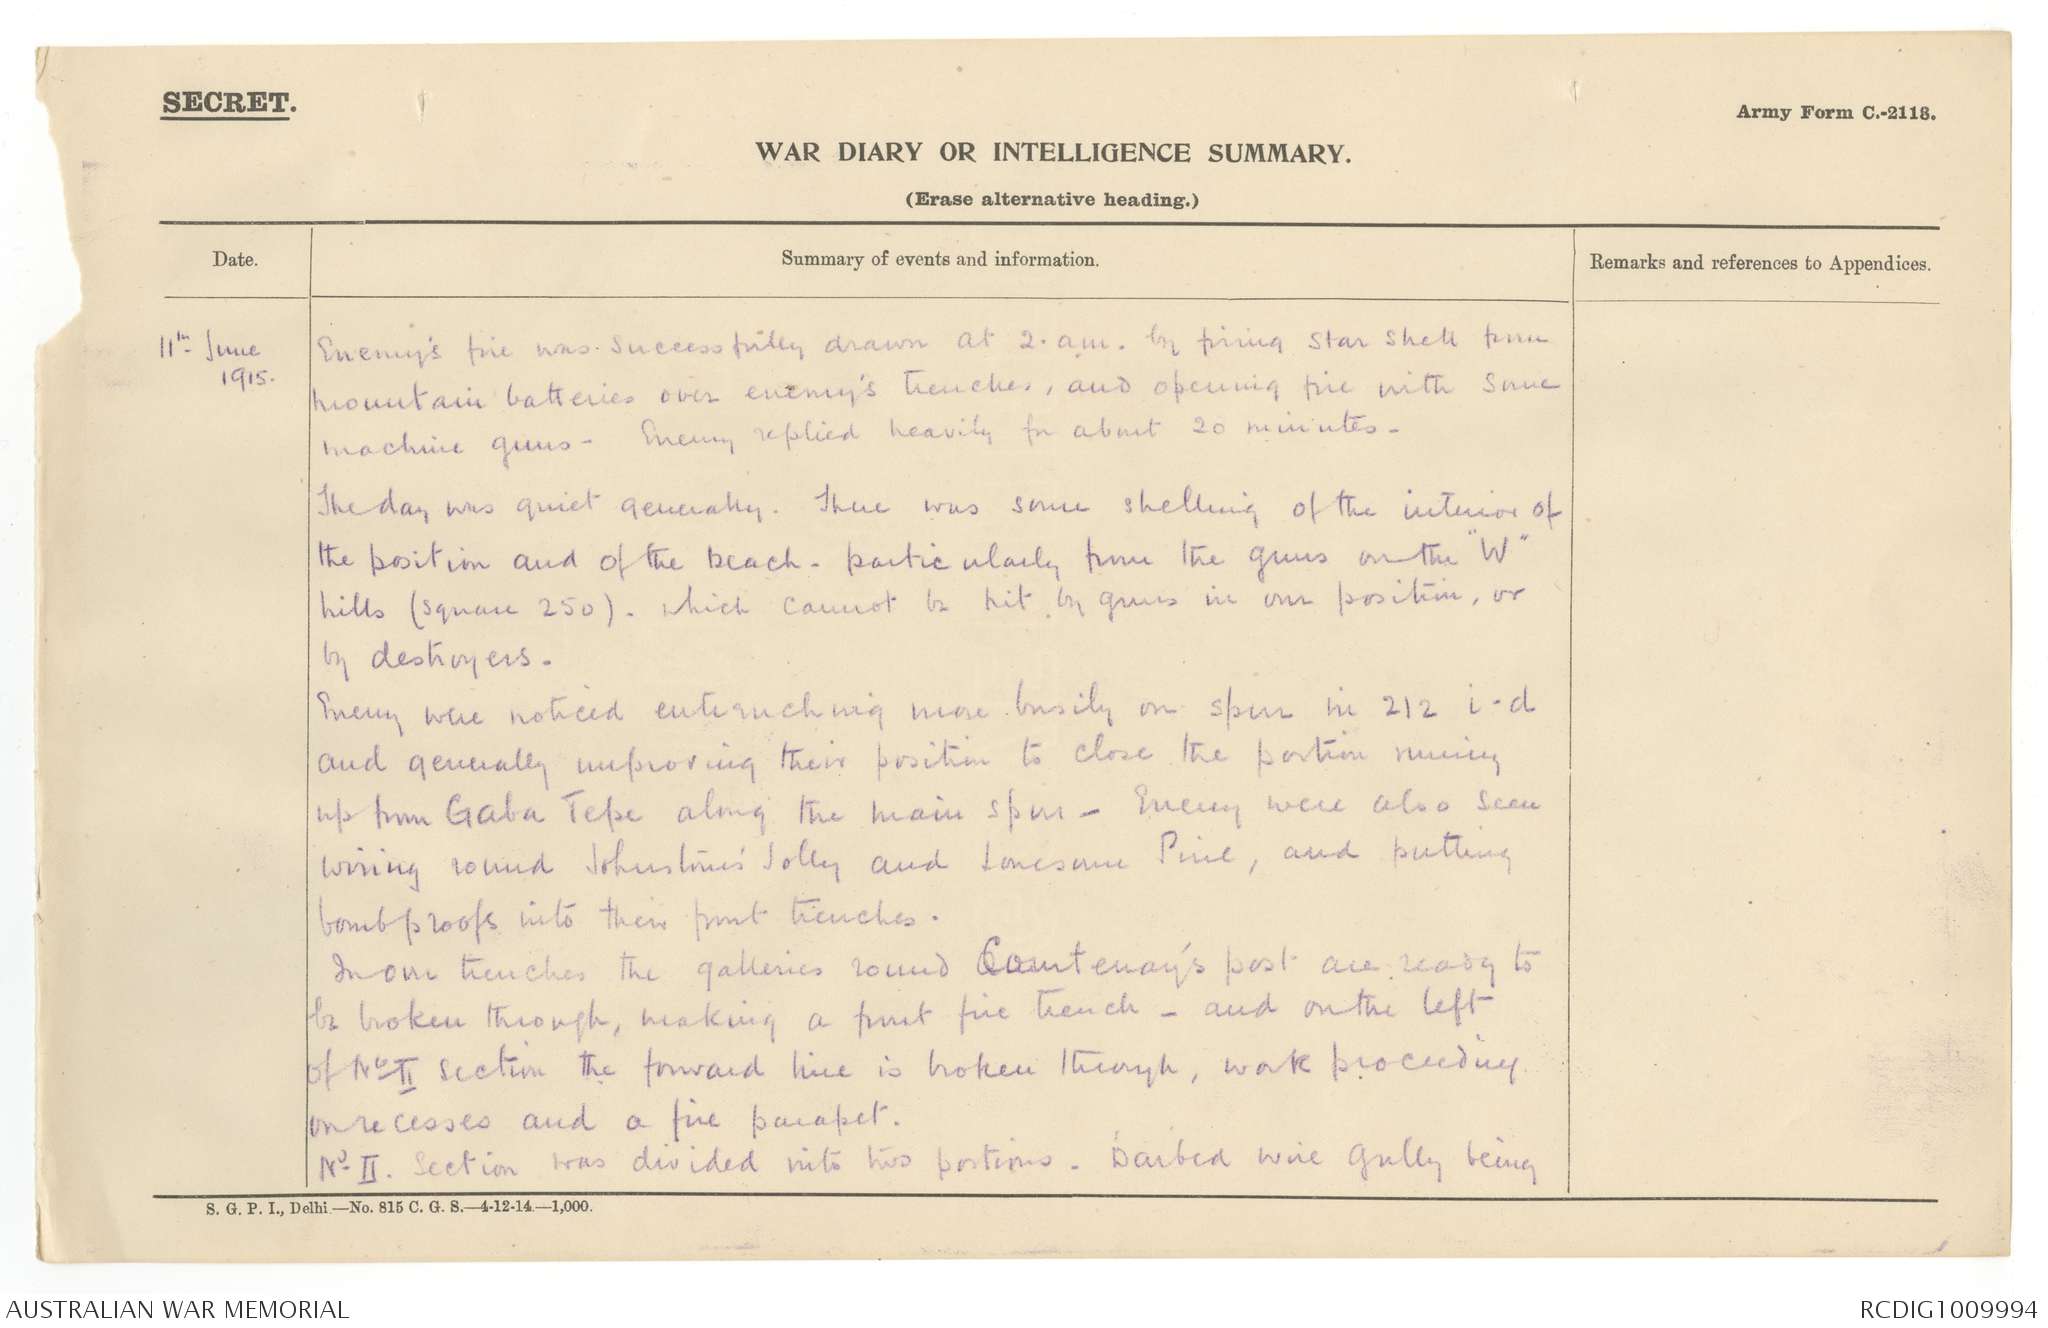 SECRET.
Army Form C.-2118.
WAR DIARY OR INTELLIGENCE SUMMARY.
(Erase alternative heading.)
Date.
Summary of events and information.
Remarks and references to Appendices.
11th June
1915.
Enemy's fire was successfully drawn at 2. am. by firing star shell from
mountain batteries over enemy's trenches, and opening fire with some
machine guns - Enemy replied heavily for about 20 minutes -
The day was quiet generally. There was some shelling of the interior of
the position and of the beach - particularly from the guns on the "W"
hills (square 250) - which cannot be hit by guns in our position, or
by destroyers -
Enemy were noticed entrenching more busily on spur in 212 i-d
and generally improving their position to close the portion running
up from Gaba Tepe along the main spur - Enemy were also seen
wiring round Johnston's Jolly and Lonesome Pine, and putting
bombproofs into their front trenches.
In our trenches the galleries round Courtenay's post are ready to
be broken through, making a front fire trench - and on the left
of No II section the forward line is broken through, work proceeding
on recesses and a fire parapet.
No II. Section was divided into two portions - Barbed wire Gully being
S. G. P. I., Delhi.—No. 815 C. G. S.—4-12-14—1,000.
AUSTRALIAN WAR MEMORIAL
RCDIG1009994